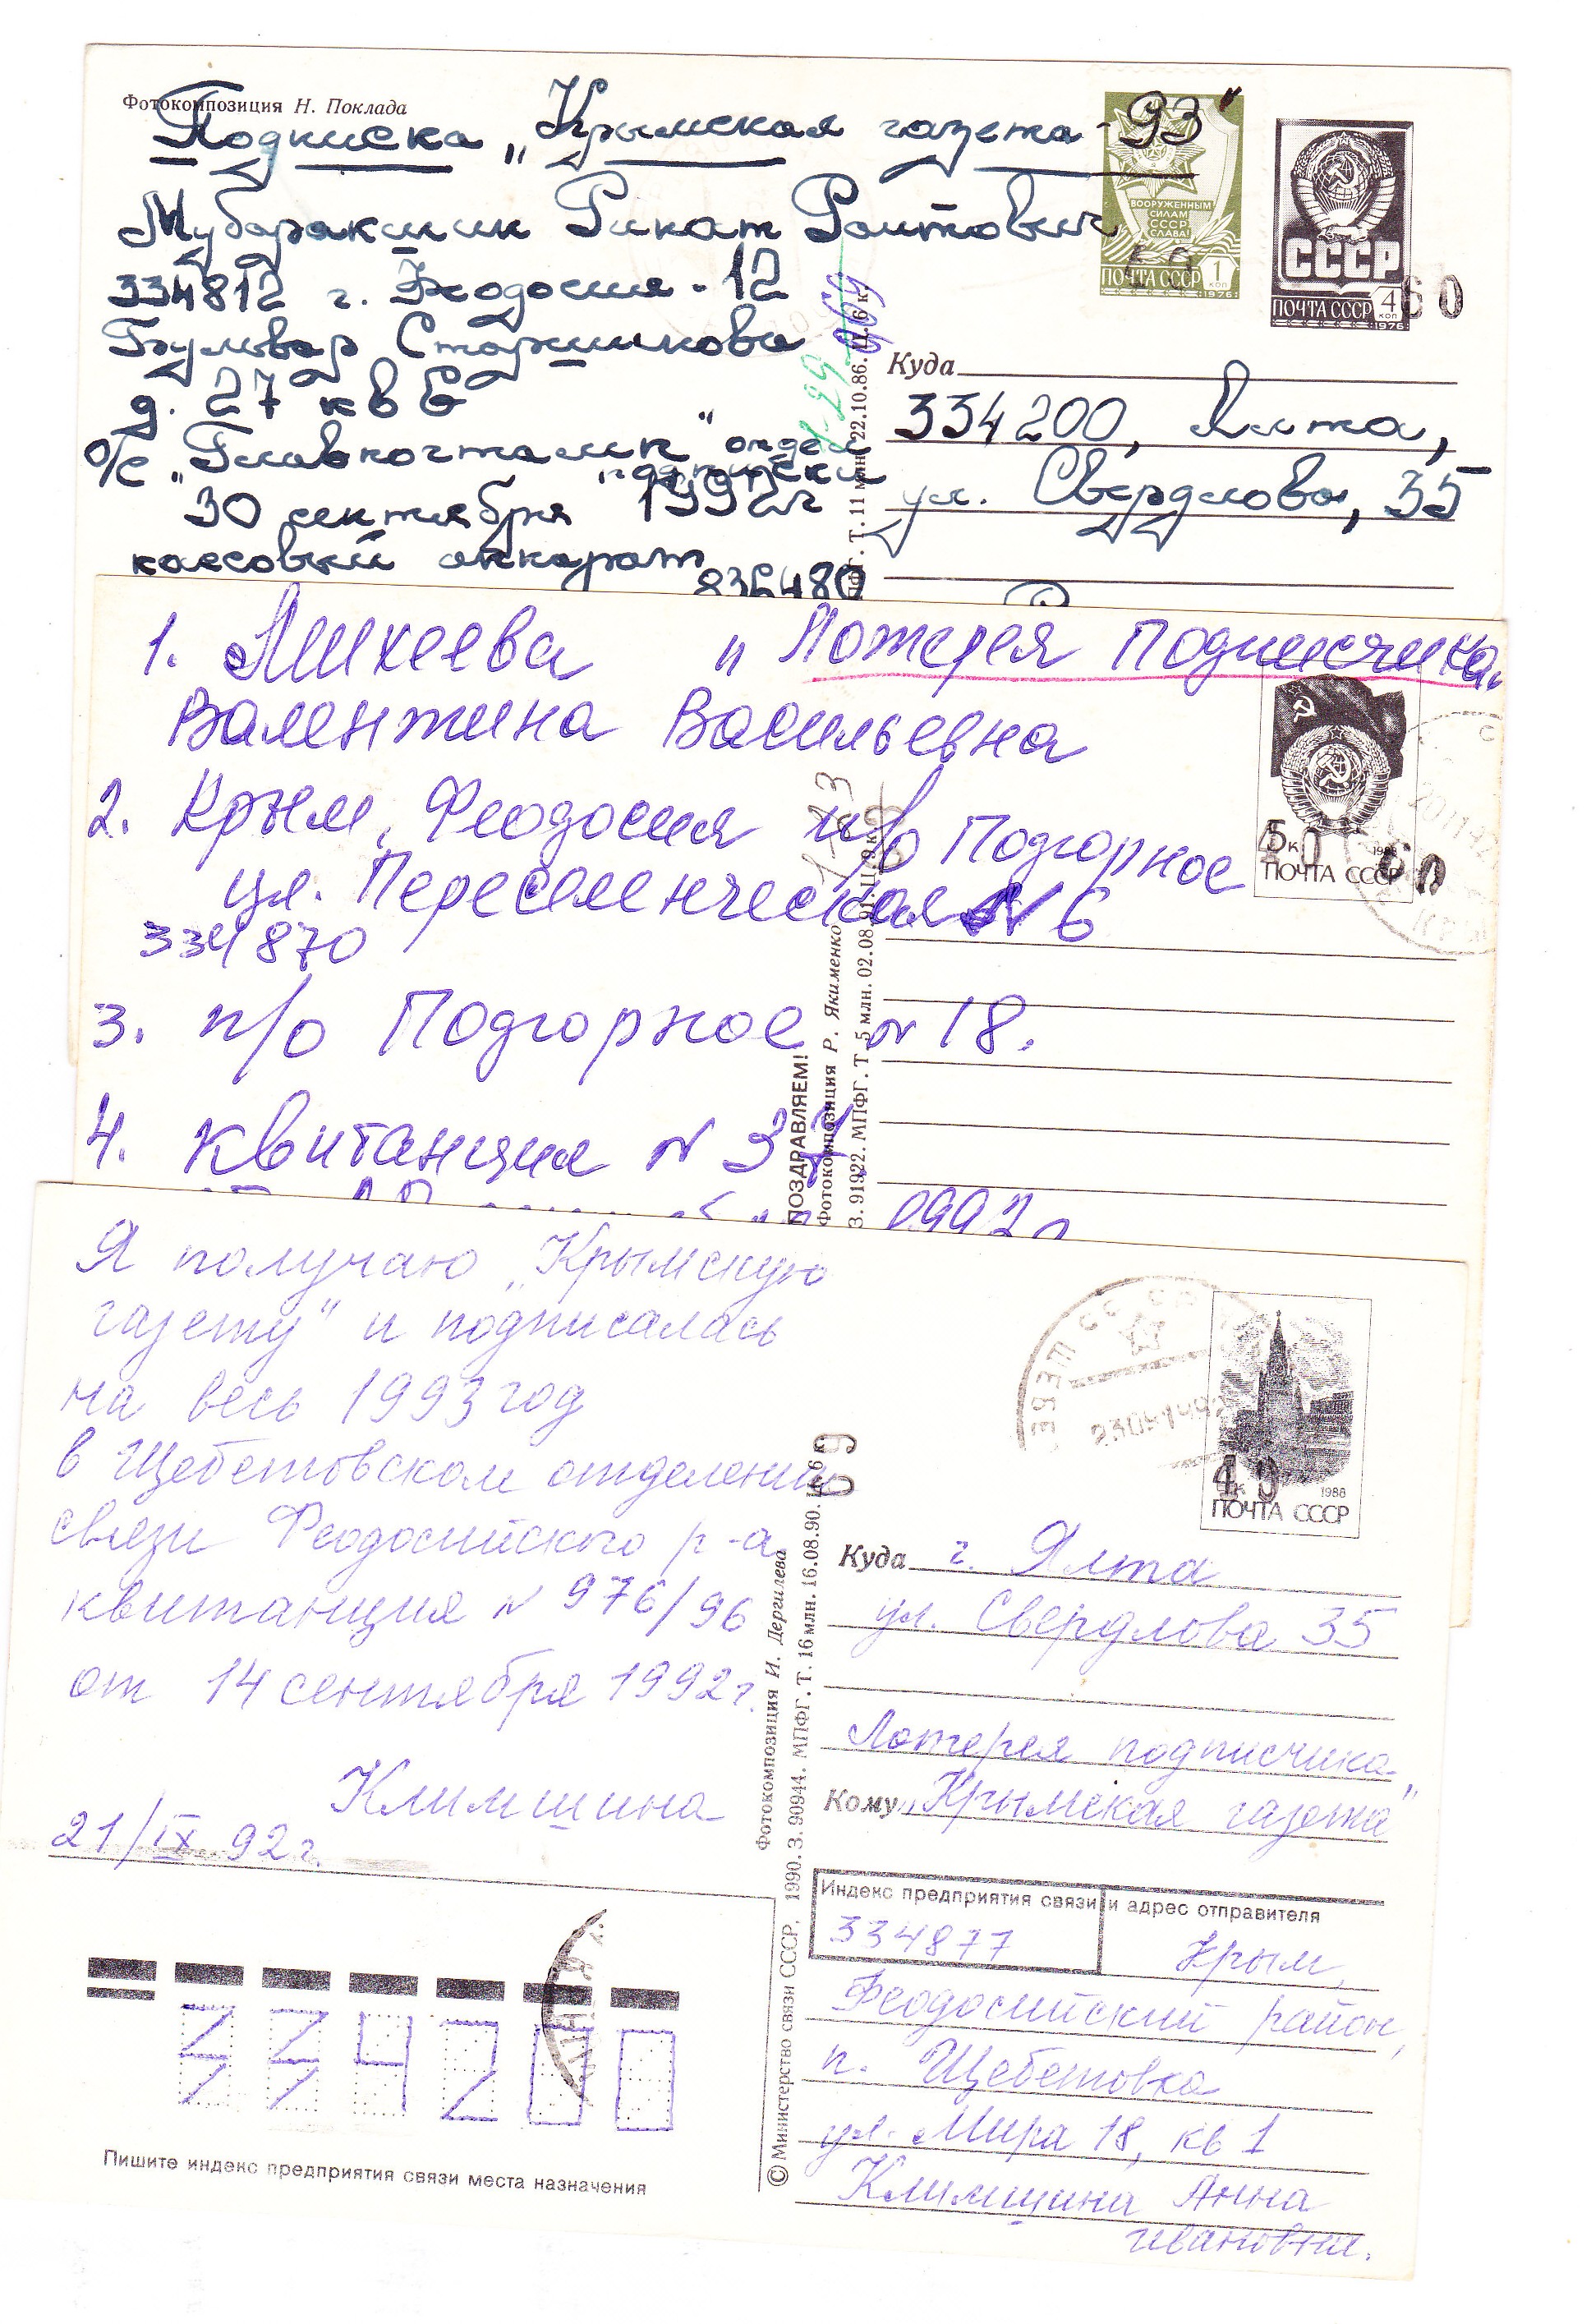 Фотокомпозиция Н. Поклада
Подписка „Крымская газета-93"
Мубаракшин Ринат Раитович
334812 г. Феодосия-12
Бульвар Старшинова
д. 27 кв 6
о/с „Главпочтамт" отдел
подписки
30 сентября 1992г
кассовый аппарат
836480
ВООРУЖЕННЫМ
СИЛАМ
СССР
СЛАВА!
ПОЧТА СССР 1
КОП
1976
СССР
ПОЧТА СССР 4
КОП
1976
60
Куда
334200, Ялта,
ул. Свердлова, 35
Т. 11 млн. 22.10.86. Ц. 6 к.
1. Михеева „Лотерея Подписчика„
Валентина Васильевна
2. Крым, Феодосия п/о Подгорное
ул. Переселенческая N 6
334870
3. п/о Подгорное N 18.
4. Квитанция N 37
1992г
5к
1988
ПОЧТА СССР
ПОЗДРАВЛЯЕМ!
Фотокомпозиция Р. Якименко
З. 91922. МПФГ. Т. 5 млн. 02.08.91. Ц. 9 к.
Я получаю „Крымскую
газету" и подписалась
на весь 1993 год
в Щебетовском отделении
связи Феодосийского р-а
квитанция N 976/96
от 14 сентября 1992г.
Климшина
21/IX 92г.
69
40
1988
ПОЧТА СССР
Куда г. Ялта
ул. Свердлова 35
Лотерея подписчика
Кому „Крымская газета"
Индекс предприятия связи и адрес отправителя
334877 Крым,
Феодосийский район,
п. Щебетовка
ул. Мира 18, кв 1
Климшина Анна
Ивановна.
334200
Пишите индекс предприятия связи места назначения
Фотокомпозиция И. Дергилева
© Министерство связи СССР, 1990. З. 90944. МПФГ. Т. 16 млн. 16.08.90. Ц. 6 к.